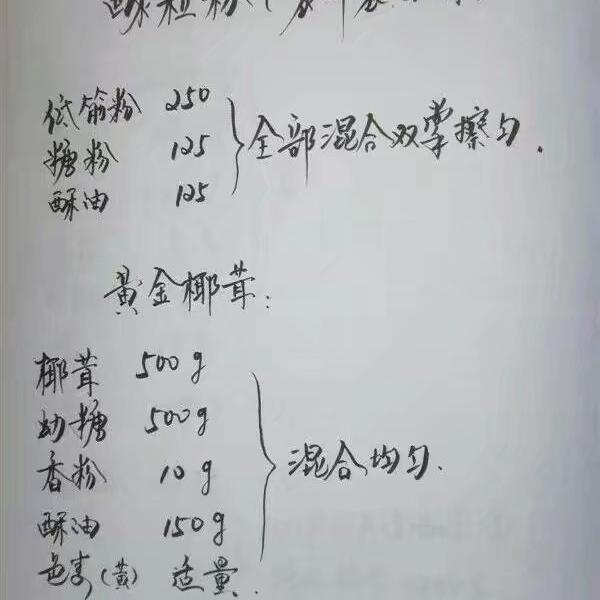 酥粒粉(
低筋粉 250
糖粉 125
酥油 125
全部混合双掌擦匀.
黄金椰茸:
椰茸 500g
幼糖 500g
香粉 10g
酥油 150g
色素(黄) 适量.
混合均匀.